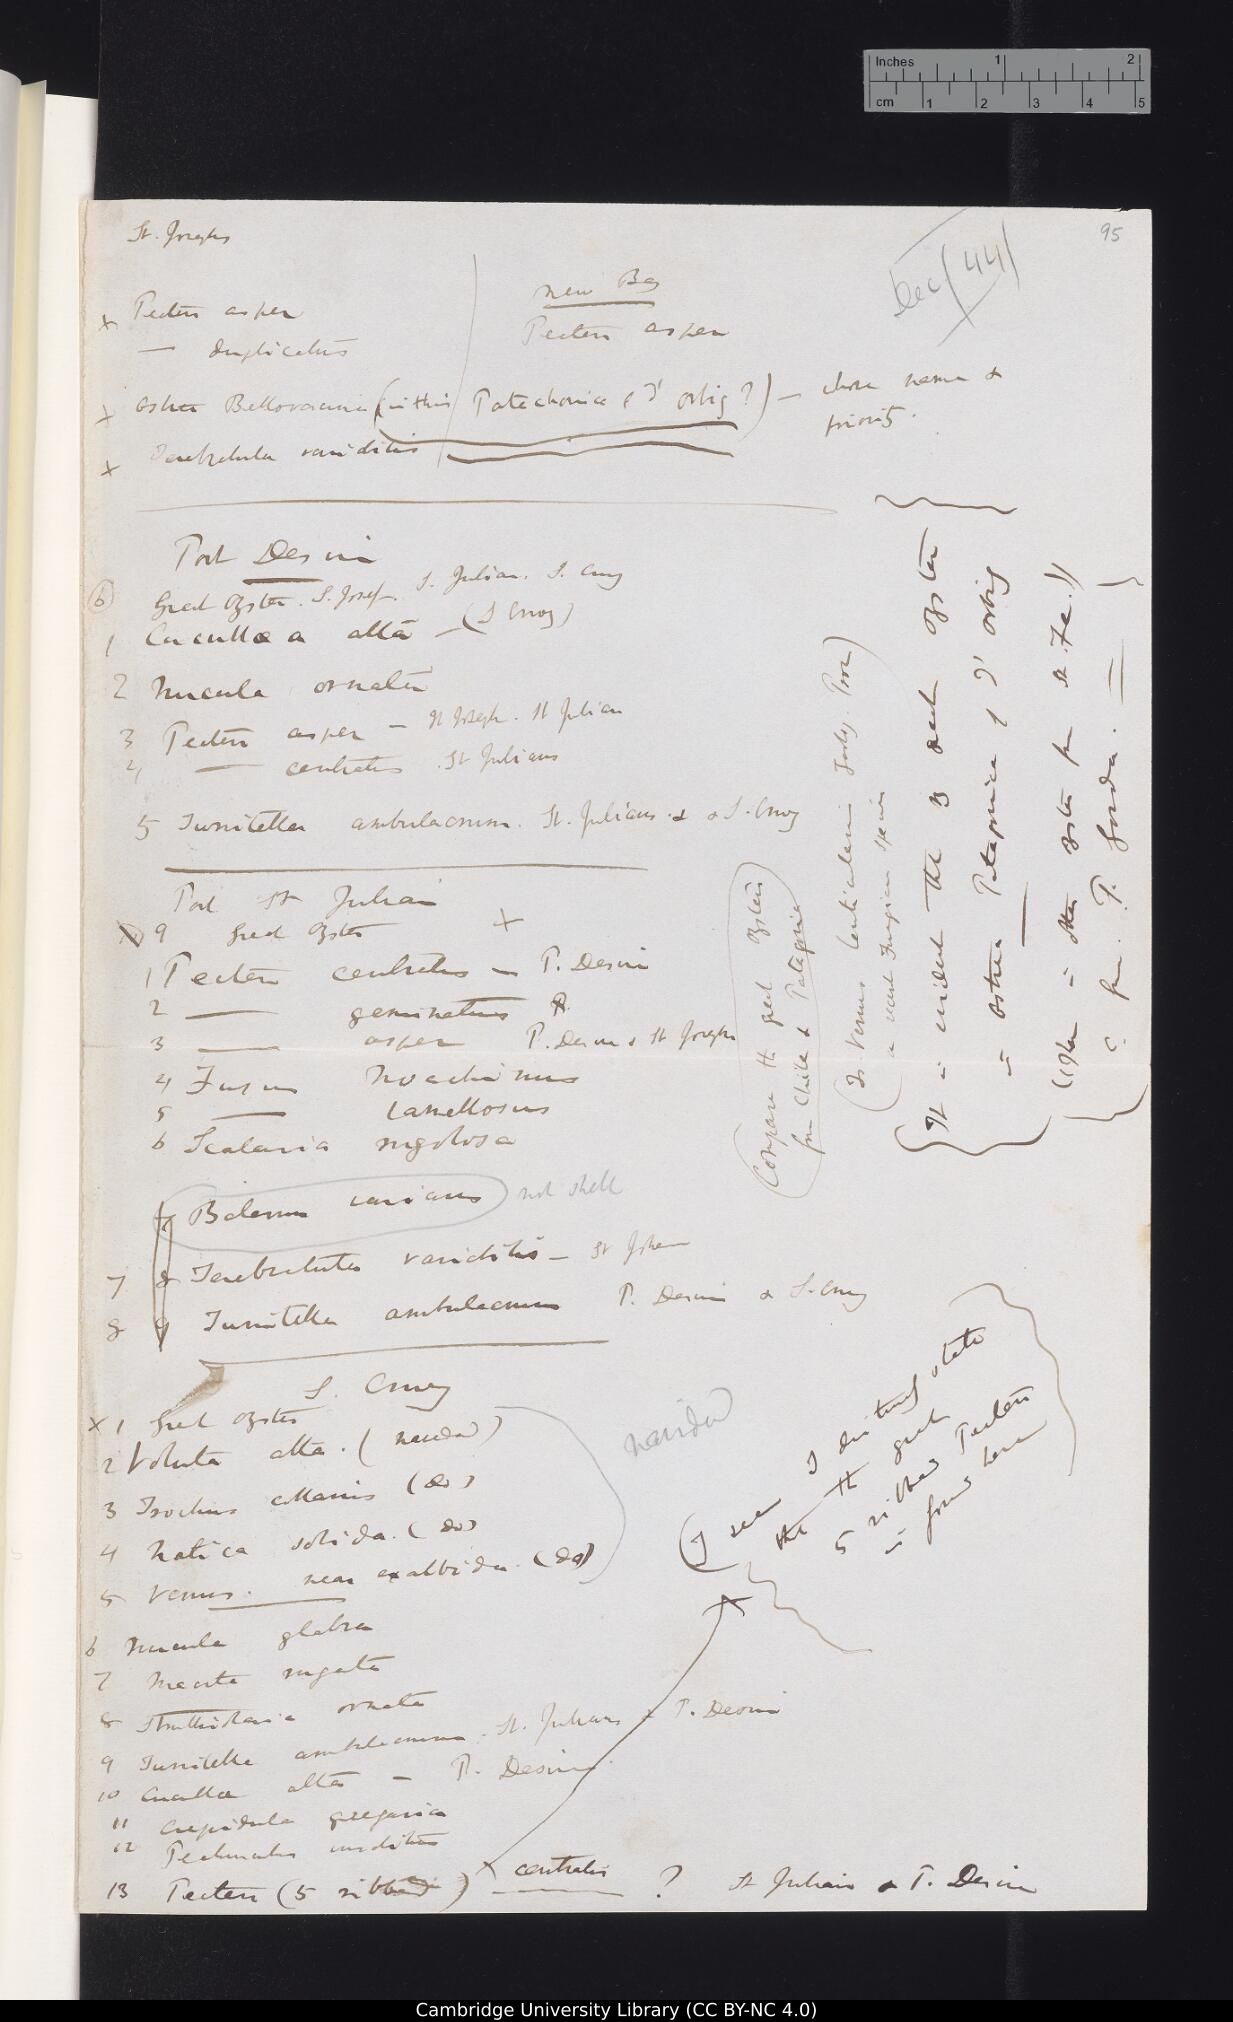 95
Dec (44)
St. Josephs
New Bay
x Pecten asper
Pecten asper
— duplicatus
x Ostrea Bellovacina (is this Patachonica of D'orbig?) — chose name &
priority.
x Terebratula variabilis
Port Desire
6 Great Oyster. S. Josef. S. Julian. S. Cruz
1 Cucullaea alta — (S Cruz)
2 Nucula ornata
3 Pecten asper — St Joseph. St Julian
4 — centralis St Julians
5 Turritella ambulacrum. St. Julians & S. Cruz
Port St Julian
9 Great Oyster x
1 Pecten centralis — P. Desire
2 — geminatus
3 — asper P. Desire & St Josephs
4 Fusus Noachinus
5 — lamellosus
6 Scalaria rugulosa
Balanus varians not shell
7 8 Terebratula variabilis — St Joseph
8 9 Turritella ambulacrum P. Desire & S. Cruz
S. Cruz
x 1 Great Oyster
2 Voluta alta. (Navidad)
3 Trochus collaris (do)
4 Natica solida. (do)
5 Venus. near exalbida. (do)
Navidad
6 Nucula glabra
7 Mactra rugata
8 Struthiolaria ornata
9 Turritella ambulacrum. St. Julians & P. Desire
10 Cucullaea alta — P. Desire.
11 Crepidula gregaria
12 Pectunculus
13 Pecten (5 ribbed) x centralis ? St Julian & P. Desire
(Compare the great oysters
from Chile & Patagonia
(Is Venus lenticularis Sowby. Prov)
a recent Fuegian species
It is evident that the great oyster
is Ostrea Patagonica of D'orbig
((There is other oyster from St. Fe.))
from P. Gorda.
(I see I distinctly state
that the great
5 ribbed Pecten
is found here
Inches 1 2
cm 1 2 3 4 5
Cambridge University Library (CC BY-NC 4.0)